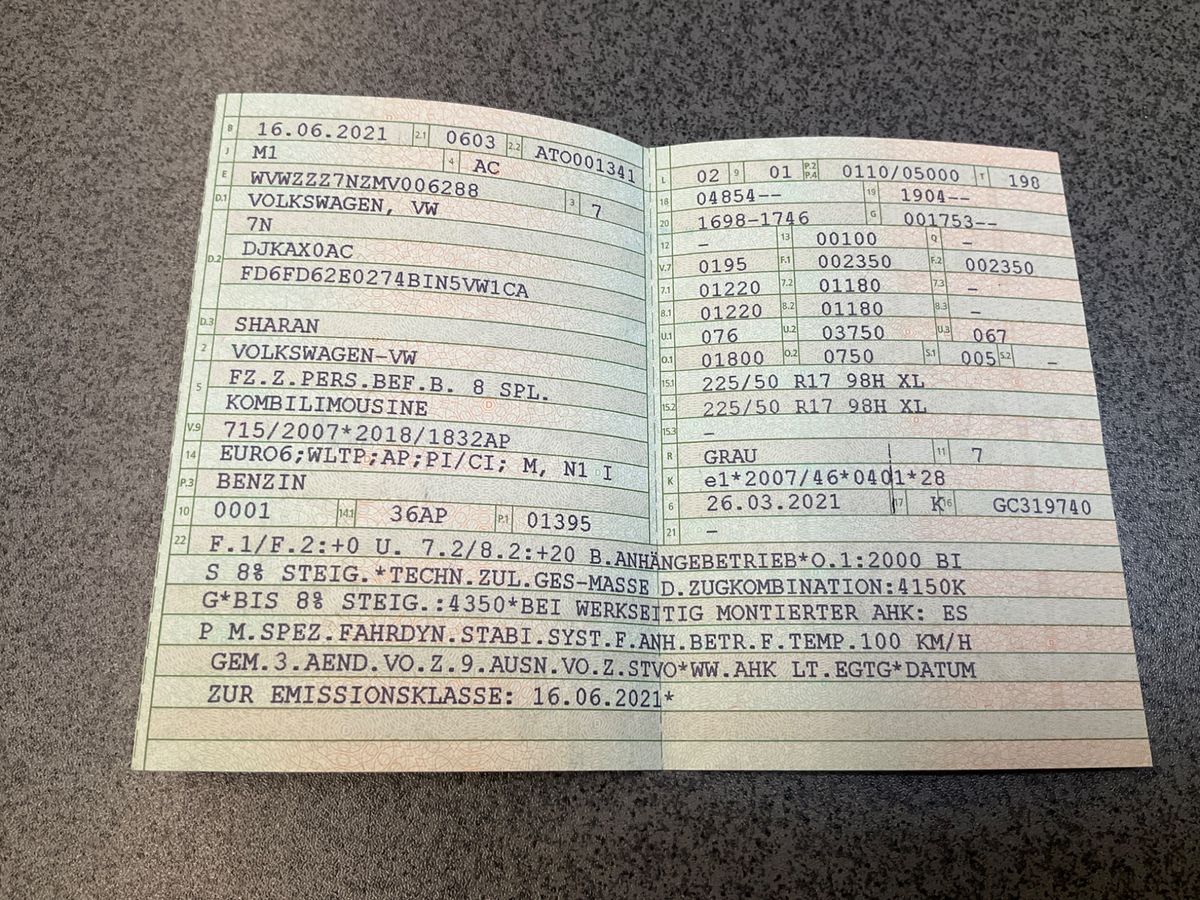 B 16.06.2021 2.1 0603 2.2 ATO001341
J M1 4 AC
E WVWZZZ7NZMV006288 3 7
D.1 VOLKSWAGEN, VW
7N
D.2 DJKAX0AC
FD6FD62E0274BIN5VW1CA
D.3 SHARAN
2 VOLKSWAGEN-VW
5 FZ.Z.PERS.BEF.B. 8 SPL.
KOMBILIMOUSINE
V.9 715/2007*2018/1832AP
14 EURO6;WLTP;AP;PI/CI; M, N1 I
P.3 BENZIN
10 0001 14.1 36AP P.1 01395
L 02 9 01 P.2 P.4 0110/05000 T 198
18 04854-- 19 1904--
20 1698-1746 G 001753--
12 - 13 00100 Q -
V.7 0195 F.1 002350 F.2 002350
7.1 01220 7.2 01180 7.3 -
8.1 01220 8.2 01180 8.3 -
U.1 076 U.2 03750 U.3 067
O.1 01800 O.2 0750 S.1 005 S.2 -
15.1 225/50 R17 98H XL
15.2 225/50 R17 98H XL
15.3 -
R GRAU 11 7
K e1*2007/46*0401*28
6 26.03.2021 17 K 16 GC319740
21 -
22 F.1/F.2:+0 U. 7.2/8.2:+20 B.ANHÄNGEBETRIEB*O.1:2000 BI
S 8% STEIG.*TECHN.ZUL.GES-MASSE D.ZUGKOMBINATION:4150K
G*BIS 8% STEIG.:4350*BEI WERKSEITIG MONTIERTER AHK: ES
P M.SPEZ.FAHRDYN.STABI.SYST.F.ANH.BETR.F.TEMP.100 KM/H
GEM.3.AEND.VO.Z.9.AUSN.VO.Z.STVO*WW.AHK LT.EGTG*DATUM
ZUR EMISSIONSKLASSE: 16.06.2021*